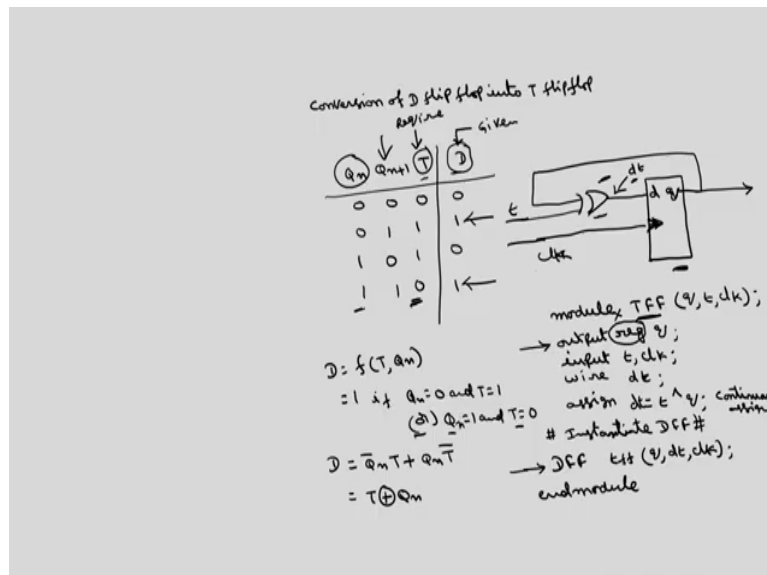 Conversion of D flip flop into T flipflop
require
Given
Qn Qn+1 T D
0 0 0 0
0 1 1 1
1 0 1 0
1 1 0 1
dt
d q
t
clk
D = f(T, Qn)
= 1 if Qn = 0 and T = 1
Qn = 1 and T = 0
D = Q̅nT + QnT̅
= T ⊕ Qn
module TFF (q, t, clk);
output reg q;
input t, clk;
wire dt;
assign dt = t ^ q;
# Instantiate DFF #
DFF tff (q, dt, clk);
endmodule